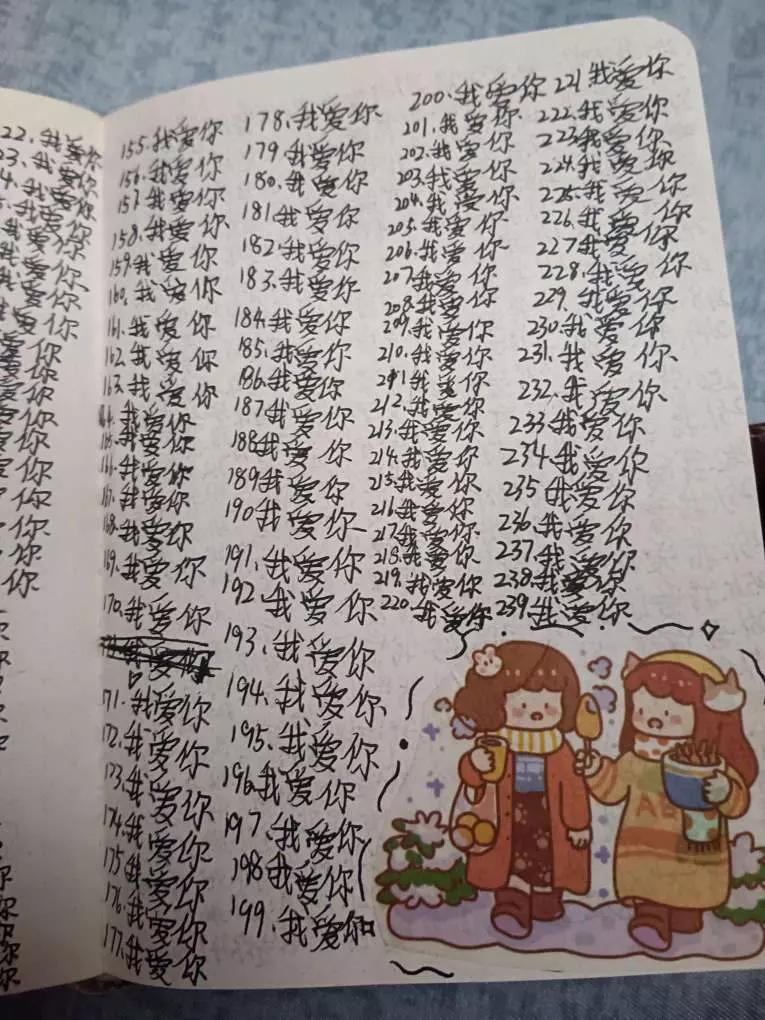 22.我爱你
23.我爱你
4.我爱你
我爱你
我爱你
我爱你
我爱你
爱你
爱你
爱你
爱你
爱你
爱你
你
你
你
你
155.我爱你
156.我爱你
157.我爱你
158.我爱你
159.我爱你
160.我爱你
161.我爱你
162.我爱你
163.我爱你
164.我爱你
165.我爱你
166.我爱你
167.我爱你
168.我爱你
169.我爱你
170.我爱你
171.我爱你
172.我爱你
173.我爱你
174.我爱你
175.我爱你
176.我爱你
177.我爱你
178.我爱你
179.我爱你
180.我爱你
181.我爱你
182.我爱你
183.我爱你
184.我爱你
185.我爱你
186.我爱你
187.我爱你
188.我爱你
189.我爱你
190.我爱你
191.我爱你
192.我爱你
193.我爱你
194.我爱你
195.我爱你
196.我爱你
197.我爱你
198.我爱你
199.我爱你
200.我爱你
201.我爱你
202.我爱你
203.我爱你
204.我爱你
205.我爱你
206.我爱你
207.我爱你
208.我爱你
209.我爱你
210.我爱你
211.我爱你
212.我爱你
213.我爱你
214.我爱你
215.我爱你
216.我爱你
217.我爱你
218.我爱你
219.我爱你
220.我爱你
221.我爱你
222.我爱你
223.我爱你
224.我爱你
225.我爱你
226.我爱你
227.我爱你
228.我爱你
229.我爱你
230.我爱你
231.我爱你
232.我爱你
233.我爱你
234.我爱你
235.我爱你
236.我爱你
237.我爱你
238.我爱你
239.我爱你